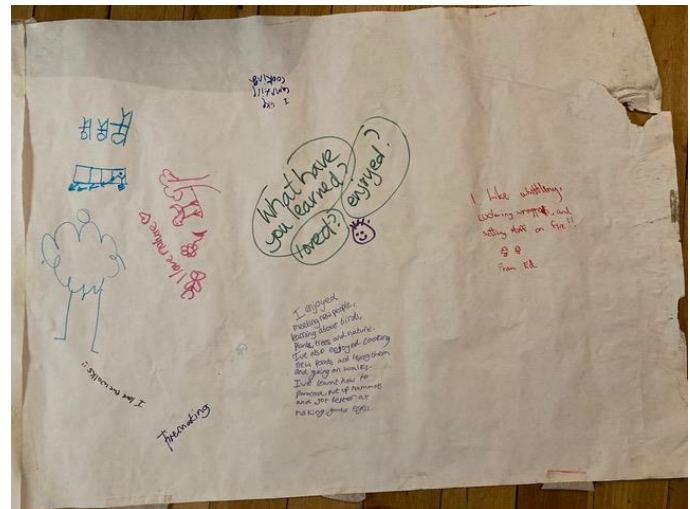 I
still
cooking.
What have
you learned?
enjoyed?
loved?
I love nature
I like whittling,
wrapped, and
setting stuff on fire!!
From Ed
I enjoyed
meeting new people,
learning about birds,
plants, trees and nature.
I've also enjoyed cooking
new foods and trying them
and going on walks.
I've learnt how to
put up hammocks
and got better at
making
I love the walks!!
firemaking